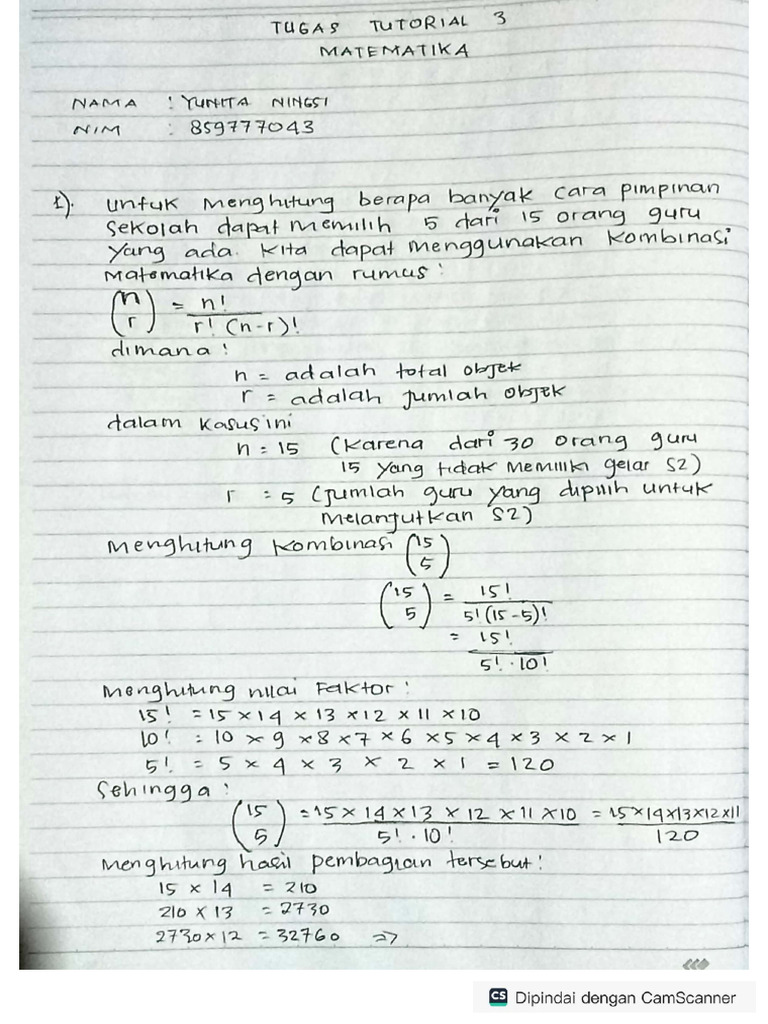 TUGAS TUTORIAL 3
MATEMATIKA
NAMA : YUNITA NINGSI
NIM : 859777043
1). Untuk Menghitung berapa banyak cara pimpinan
Sekolah dapat memilih 5 dari 15 orang guru
Yang ada. Kita dapat menggunakan Kombinasi
Matematika dengan rumus :
(n r) = n! / r! (n-r)!
dimana :
n = adalah total objek
r = adalah jumlah objek
dalam kasus ini
n = 15 (Karena dari 30 orang guru
15 yang tidak memiliki gelar S2)
r = 5 (Jumlah guru yang dipilih untuk
Melanjutkan S2)
Menghitung Kombinasi (15 5)
(15 5) = 15! / 5! (15-5)!
= 15! / 5! · 10!
Menghitung nilai Faktor :
15! = 15 × 14 × 13 × 12 × 11 × 10
10! = 10 × 9 × 8 × 7 × 6 × 5 × 4 × 3 × 2 × 1
5! = 5 × 4 × 3 × 2 × 1 = 120
Sehingga :
(15 5) = 15 × 14 × 13 × 12 × 11 × 10 / 5! · 10! = 15×14×13×12×11 / 120
Menghitung hasil pembagian tersebut :
15 × 14 = 210
210 × 13 = 2730
2730 × 12 = 32760 =>
CS Dipindai dengan CamScanner